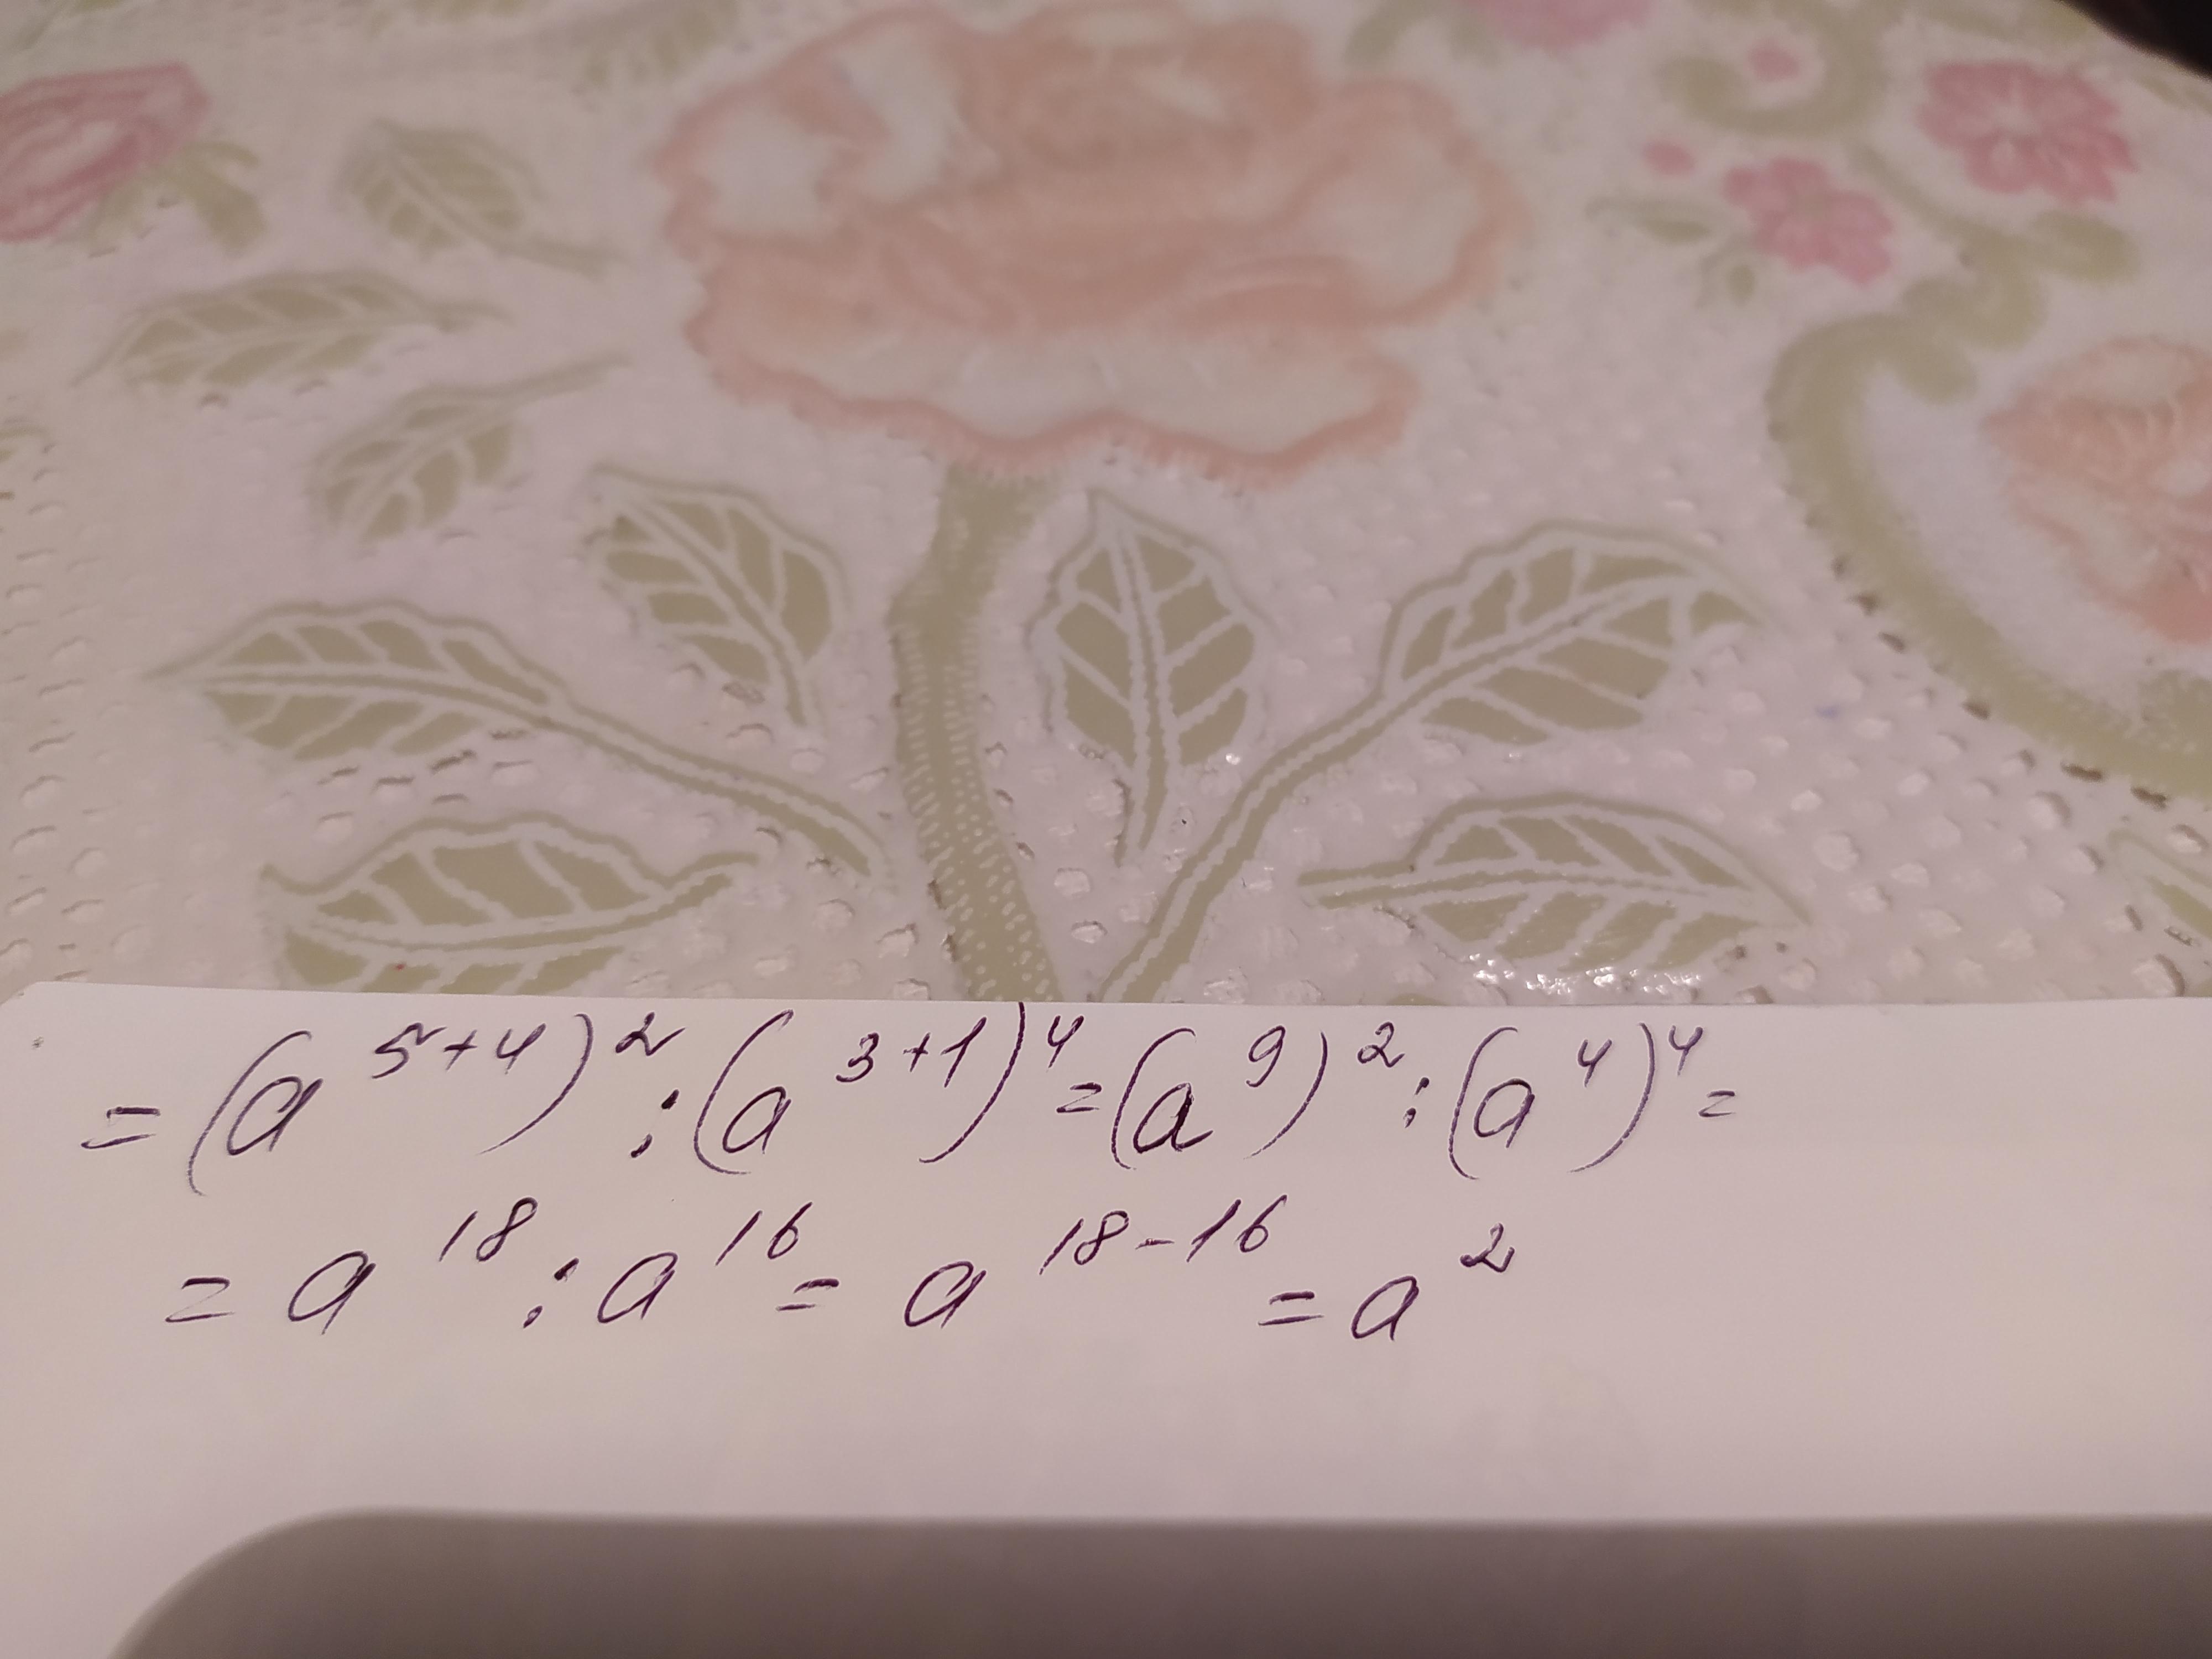 = (a^{5+4})^2 : (a^{3+1})^4 = (a^9)^2 : (a^4)^4 =
= a^{18} : a^{16} = a^{18-16} = a^2